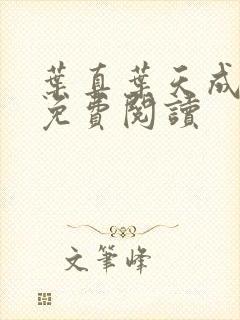 葉真葉天成
免費閱讀
文筆峰